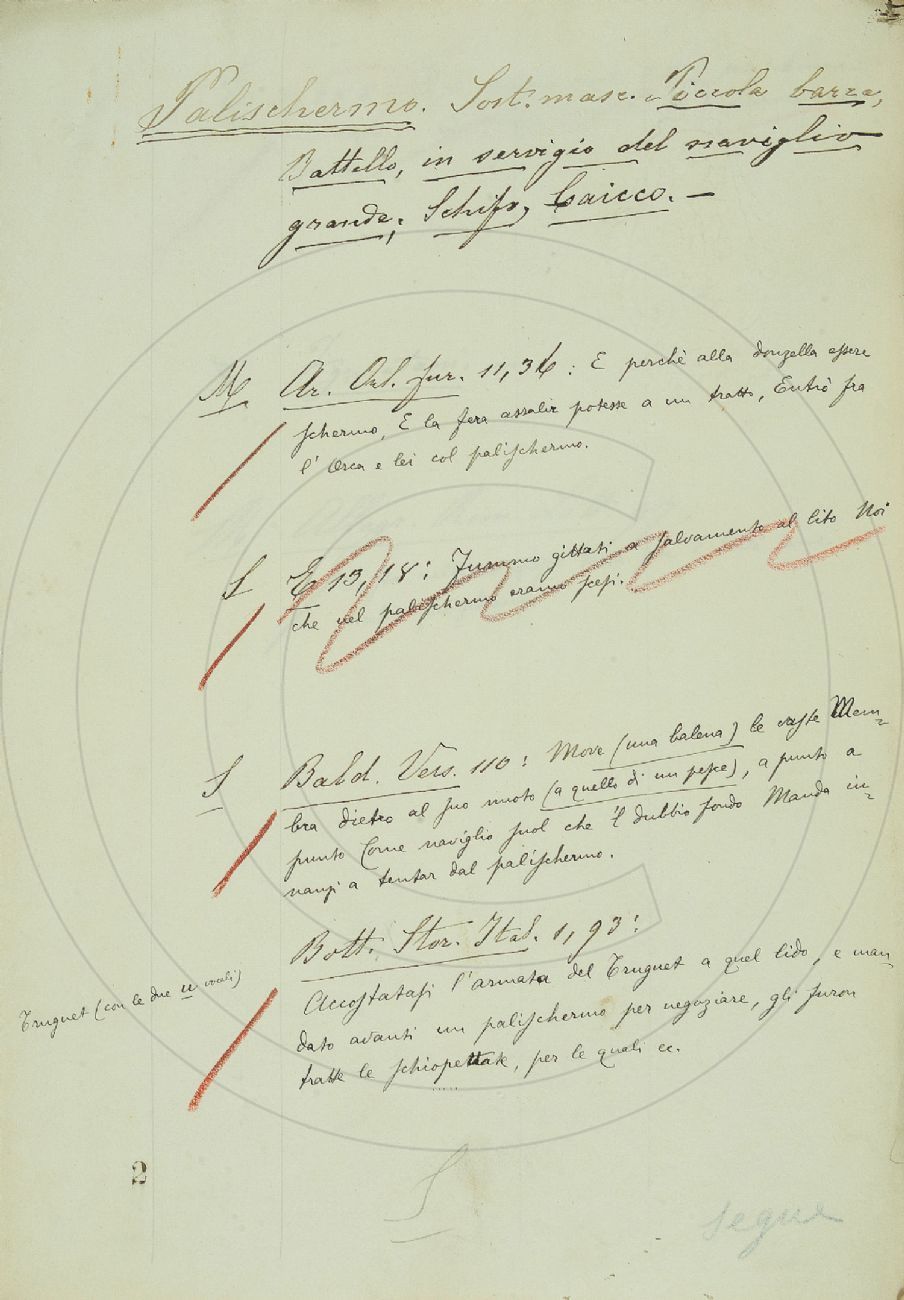 Palischermo. Sost. masc. Piccola barca,
Battello, in servigio del naviglio
grande; Schifo, Caicco. —
M Ar. Orl. fur. 11, 36: E perchè alla donzella essere
schermo, E la fera assalir potesse a un tratto, Entrò fra
l'Orca e lei col palischermo.
S E 19, 18: Fummo gittati a salvamento al lito Noi
che nel palischermo eramo scesi.
S Bald. Vers. 110: Move (una balena) le vaste Mem-
bra dietro al suo nuoto (a quello di un pesce), a punto a
punto Come naviglio suol che 'l dubbio fondo Manda in-
nanzi a tentar dal palischermo.
Bott. Stor. Ital. 1, 93:
Accostatasi l'armata del Truguet a quel lido, e man
Truguet (con le due u vocali)
dato avanti un palischermo per negoziare, gli furon
tratte le schiopettate, per le quali ec.
2
S
segue